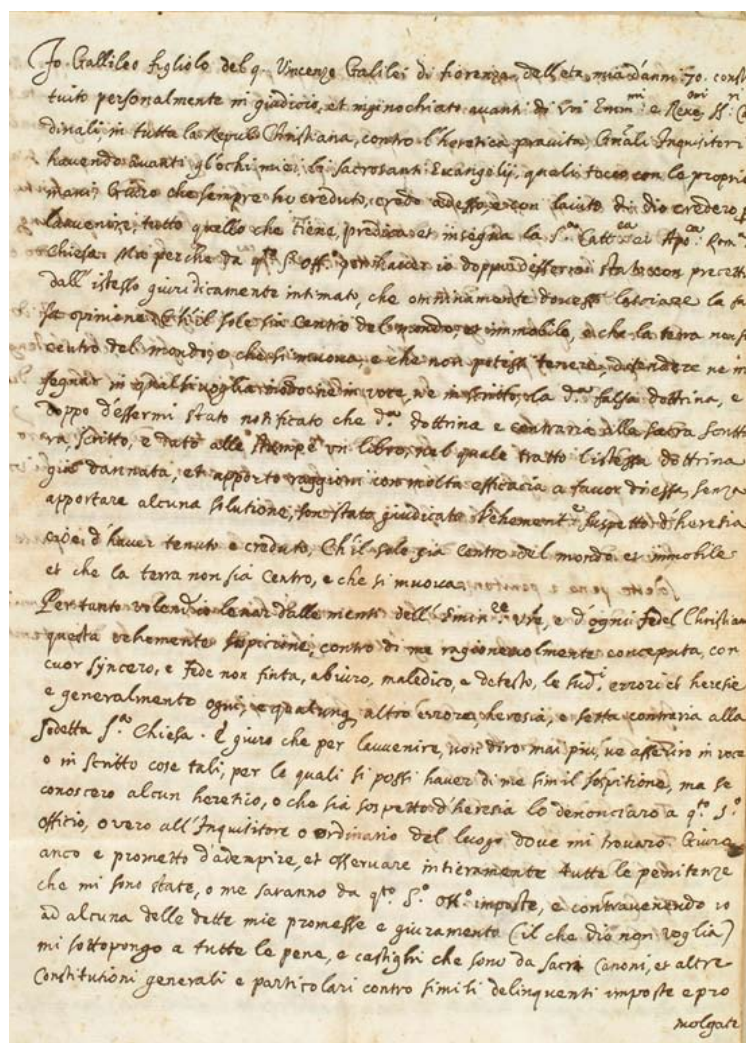 Io Gallileo figliolo del q. Vincenzo Galilei di fiorenza, dell'età mia d'anni 70. consti
tuito personalmente in giudicio, et inginochiato avanti di Voi Emm.mi e Reve.mi SS.ri Ca
dinali in tutta la Repub. Christiana, contro l'heretica pravita, Gnali Inquisitori
havendo avanti gl'ochi miei li sacrosanti Evangelij, quali tocco con le proprie
mani, Giuro che sempre ho creduto, credo adesso, e con laiuto di dio credero p
lauvenire, tutto quello che tiene, predica et insegna la S.ta Catt.ca et Apo.ca Rom.a
Chiesa. Ma perche da q.to S. Off.o per haver io doppo d'essermi stato con precetto
dall'istesso giuridicamente intimato, che omninamente dovessi lassiare la fa
sa opinione Ch'il sole sia centro del mondo, et immobile, e che la terra non si
centro del mondo, e che si muova, e che non potessi tenere, difendere ne in
segnar in qualsivoglia modo ne in voce, ne in scritto, la d.a falsa dottrina, e
doppo d'essermi stato notificato che d.a dottrina e contraria alla sacra scrittu
ra, scritto, e dato alle stampe un libro, nel quale tratto l'istessa dottrina
già dannata, et apporto raggioni con molta efficacia a favor di essa, senza
apportare alcuna solutione, son stato giudicato vehement.e suspetto d'heresia
cioè d'haver tenuto e creduto, Ch'il sole sia centro del mondo et immobile
et che la terra non sia centro, e che si muova.
Pertanto volend'io levar dalle menti dell'Emin.ze V're, e d'ogni fedel Christian
questa vehemente sospicione, contro di me ragionevolmente conceputa, con
cuor syncero, e fede non finta, abiuro, maledico, e detesto, le sud.i errori et heresie
e generalmente ogni, e qualunq altro errore, heresia, e setta contraria alla
sodetta S.ta Chiesa. E giuro che per lauvenire, non diro mai piu, ne asseriro in voce
o in scritto cose tali, per le quali si possi haver di me simil sospitione, ma se
conoscero alcun heretico, o che sia sospetto d'heresia lo denonciaro a q.to S.o
officio, overo all'Inquisitore o ordinario del luogo dove mi trovarò. Giuro
anco e prometto d'adempire, et osservare intieramente tutte le penitenze
che mi sono state, o me saranno da q.to S.o Off.o imposte, e contravenendo io
ad alcuna delle dette mie promesse e giuramento (il che dio non voglia)
mi sottopongo a tutte le pene, e castighi che sono da sacri Canoni, et altre
Constitutioni generali e particolari contro simili delinquenti imposte e pro
molgate